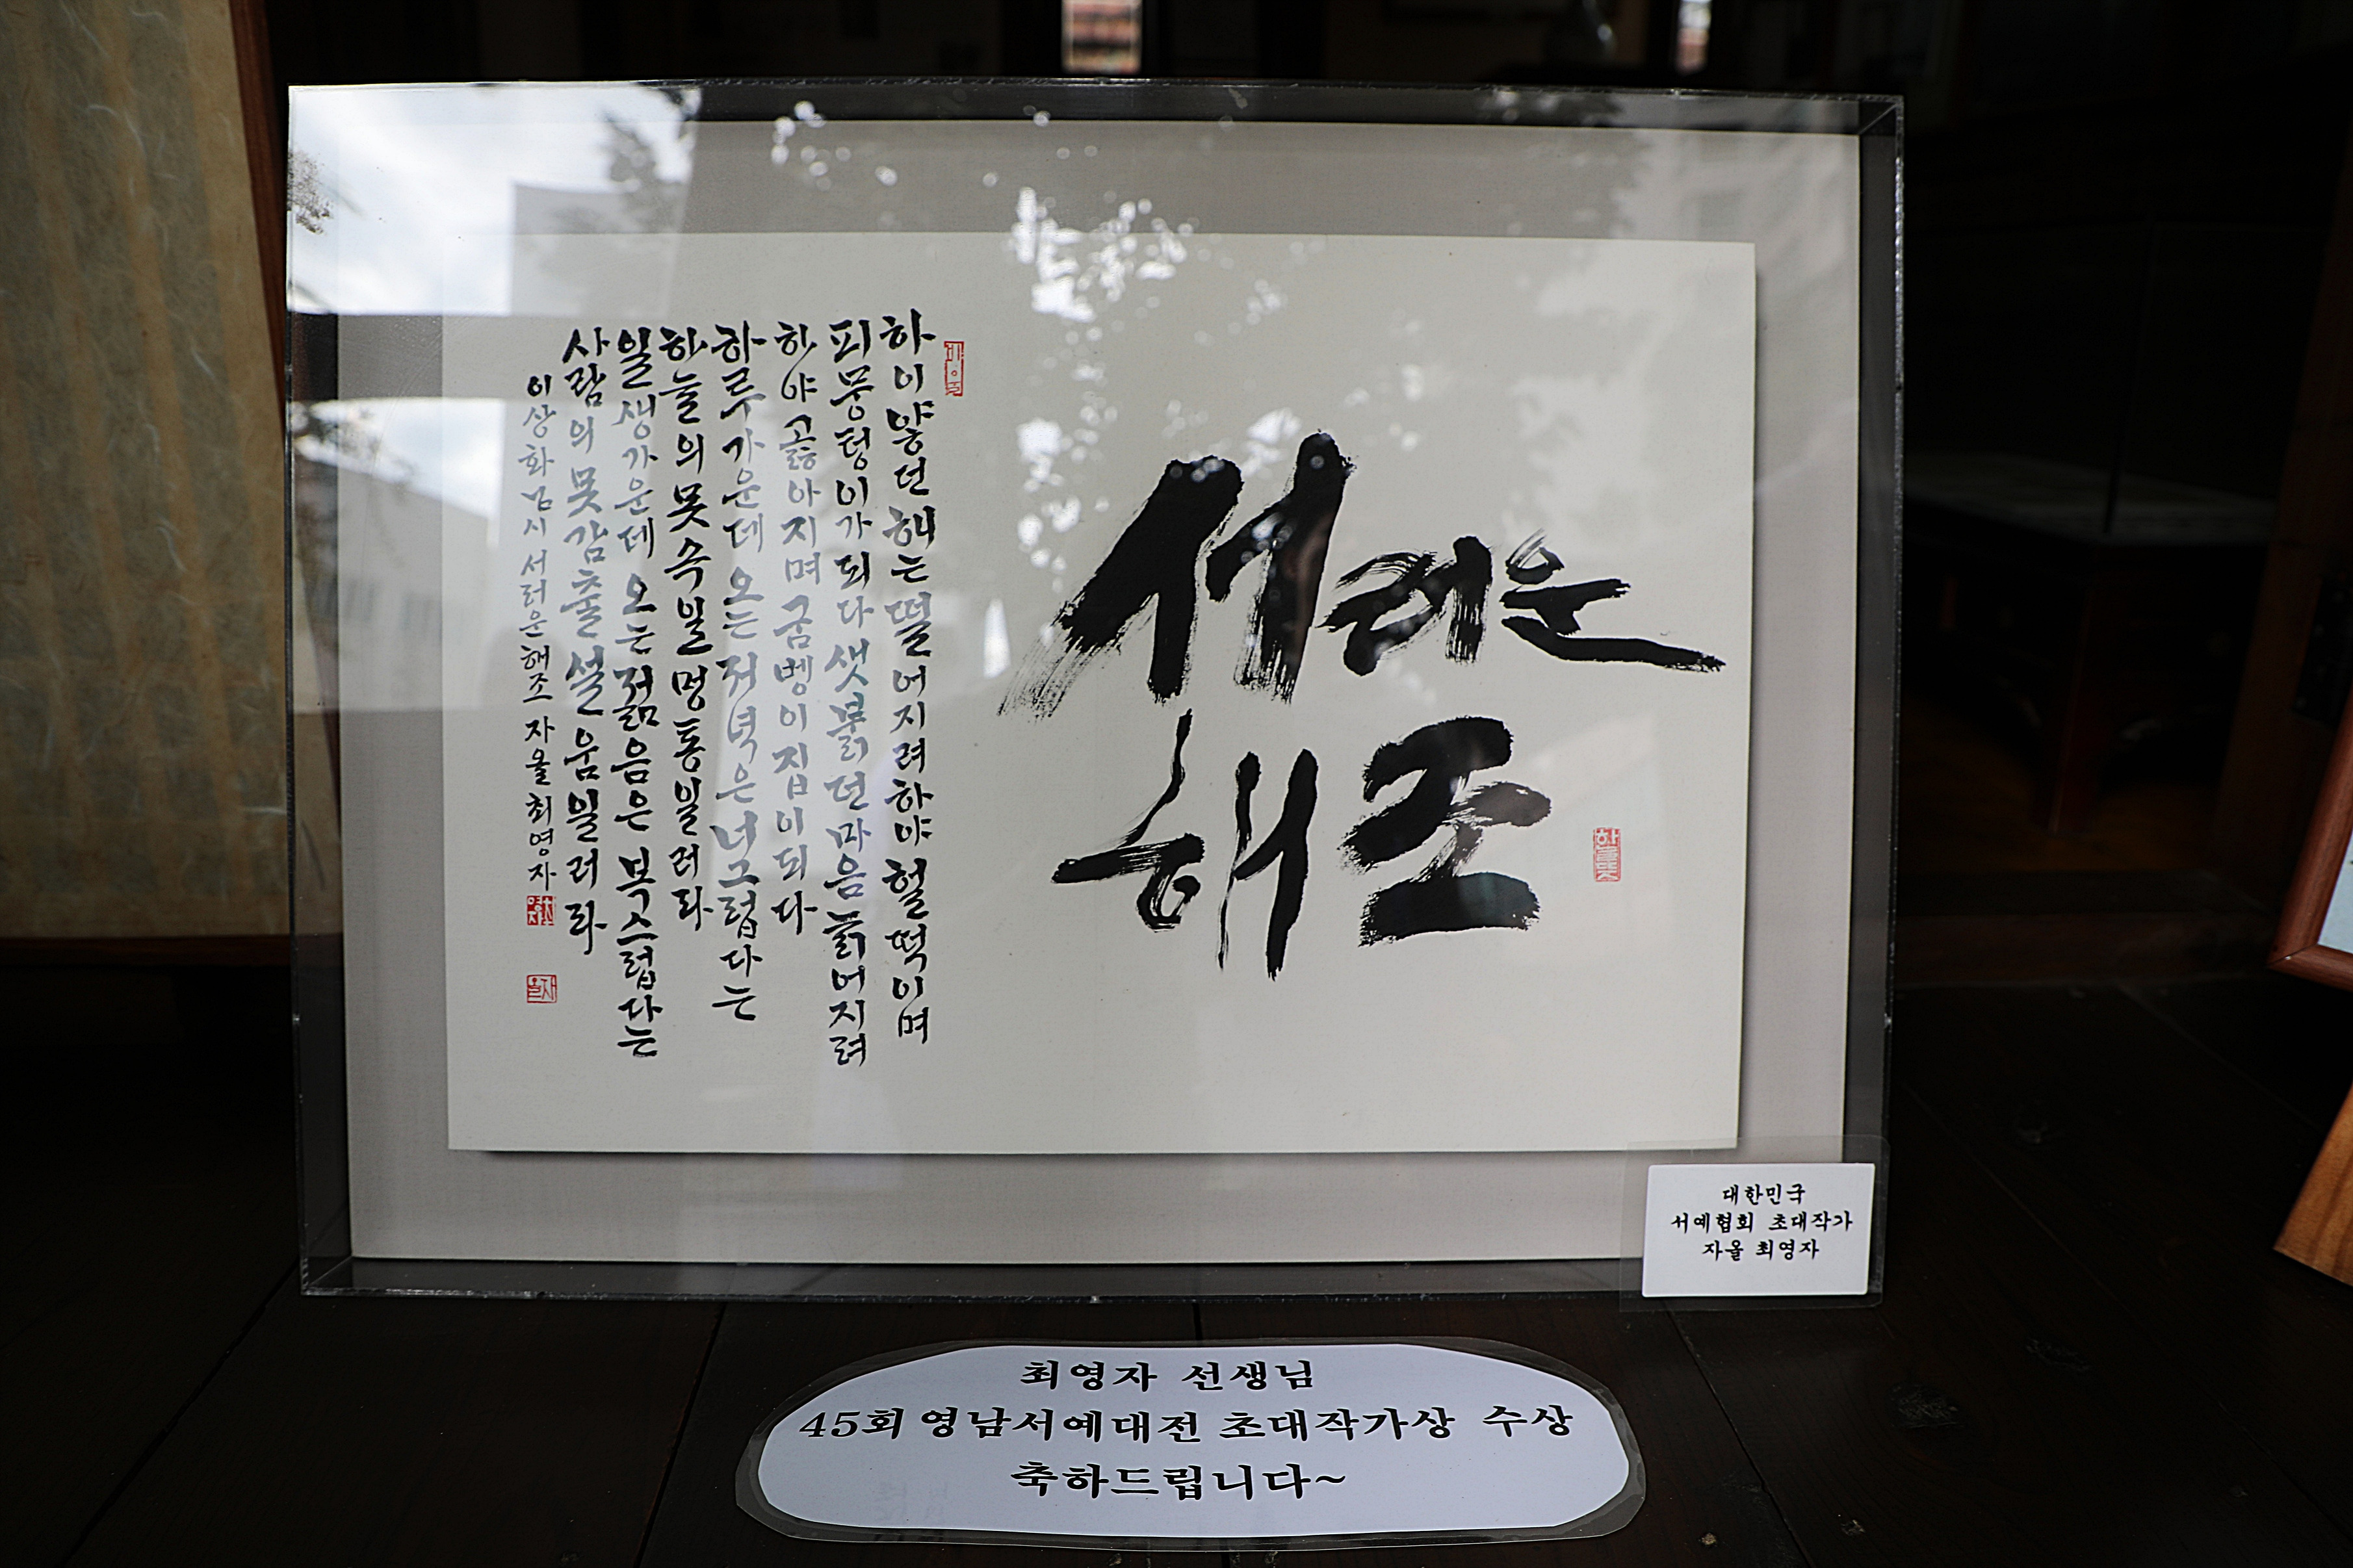 서러운
해조
하이얗던해는떨어지려하야헐떡이며
피뭉텅이가되다샛붉던마음늙어지려
하야곯아지며굼벵이집이되다
하루가운데오는저녁은너그럽다는
하늘의못속일멍통일러라
일생가운데오는젊음은복스럽다는
사람의못감출설움일러라
이상화님시서러운해조자올최영자
대한민국
서예협회 초대작가
자올 최영자
최영자 선생님
45회 영남서예대전 초대작가상 수상
축하드립니다~